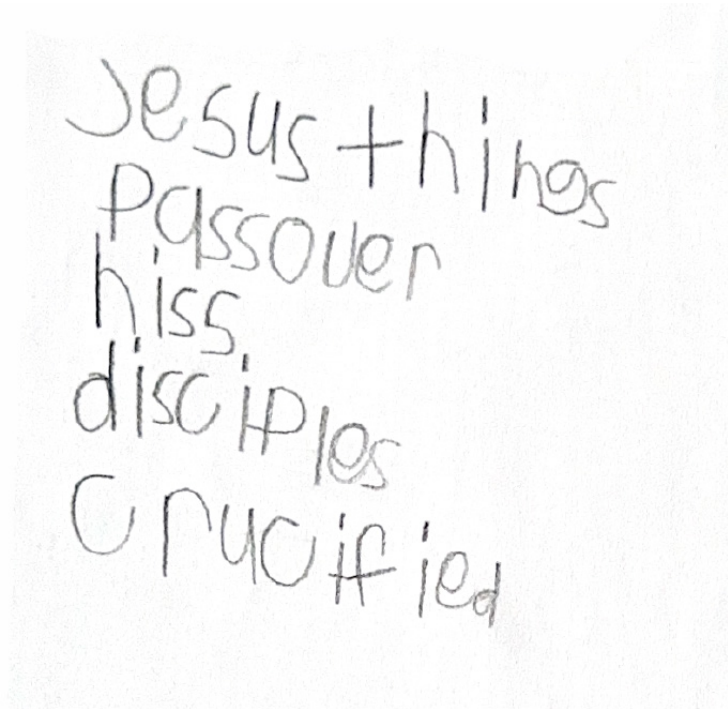 Jesus things
Passover
hiss
disciples
crucified